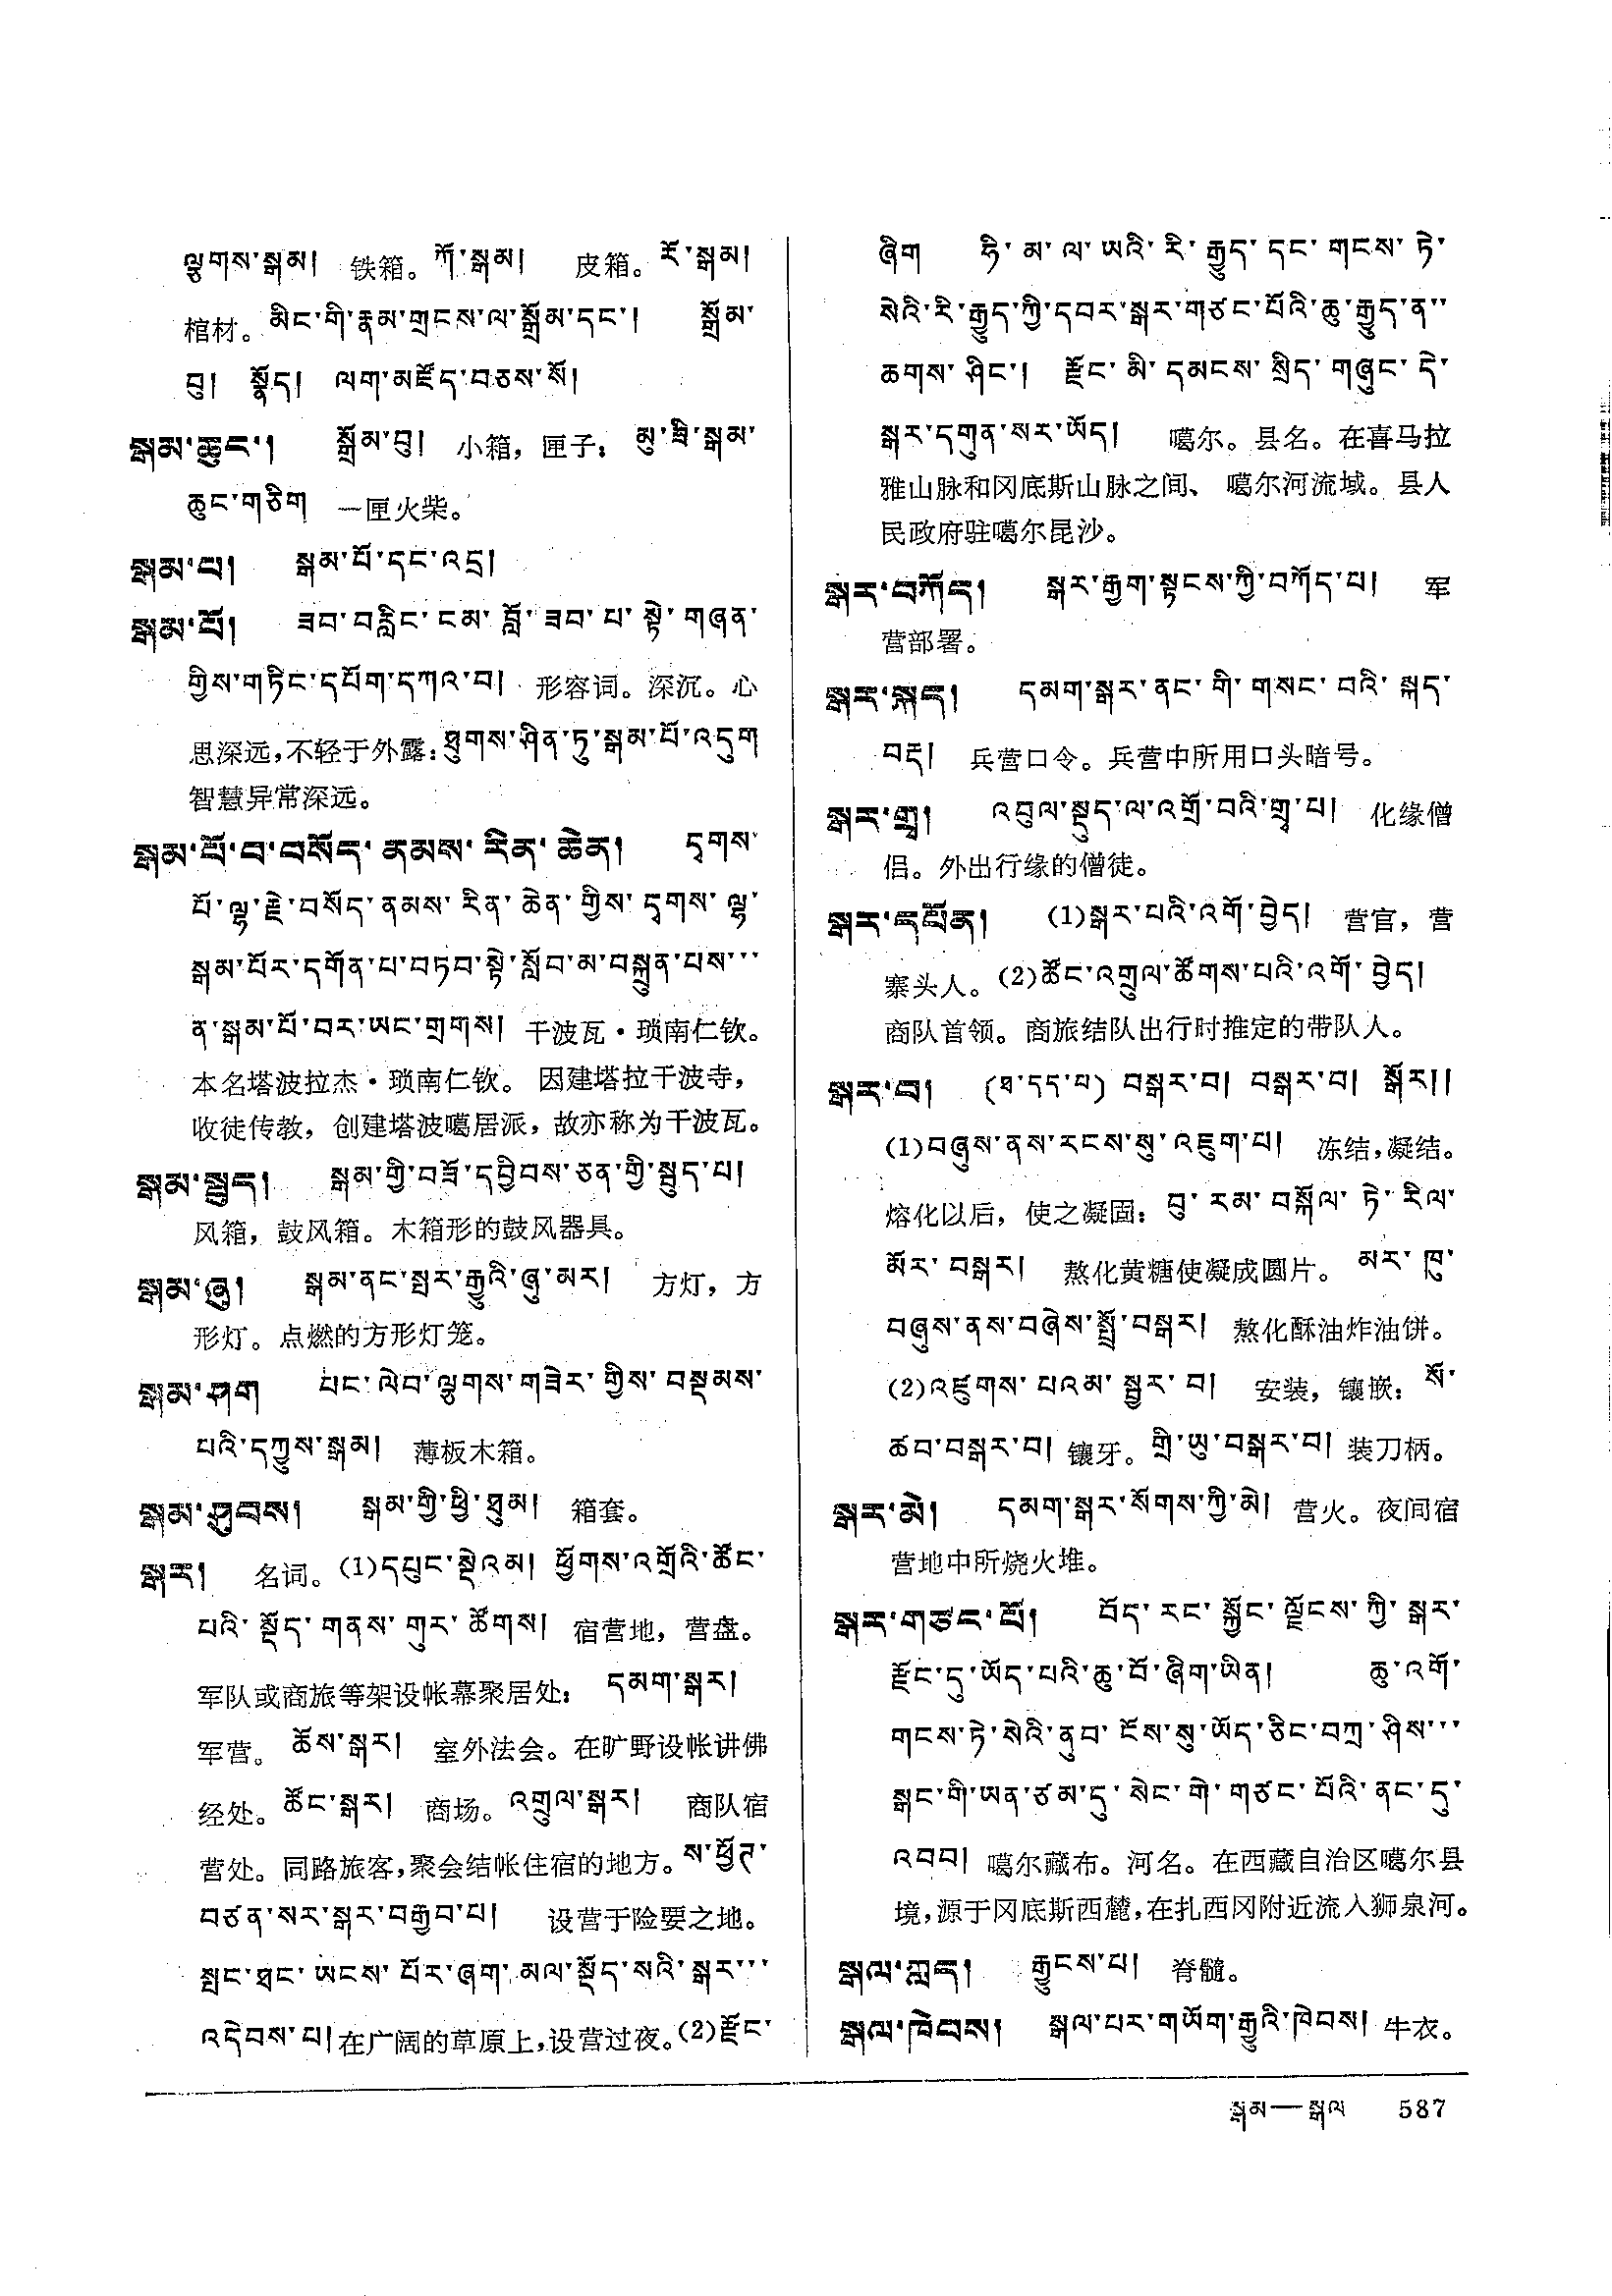 ལྕགས་སྒམ། 铁箱。ཀོ་སྒམ། 皮箱。རོ་སྒམ།
棺材。མིང་གི་རྣམ་གྲངས་ལ་སྒྲོམ་དང་། སྒྲོམ་
བུ། སྣོད། ལག་མཛོད་བཅས་སོ།
སྒམ་ཆུང་། སྒྲོམ་བུ། 小箱，匣子：མུ་ཟི་སྒམ་
ཆུང་གཅིག 一匣火柴。
སྒམ་པ། སྒམ་པོ་དང་འདྲ།
སྒམ་པོ། ཟབ་བརླིང་ངམ་བློ་ཟབ་པ་སྟེ་གཞན་
གྱིས་གཏིང་དཔོག་དཀའ་བ། 形容词。深沉。心
思深远，不轻于外露：ཐུགས་ཤིན་ཏུ་སྒམ་པོ་འདུག
智慧异常深远。
སྒམ་པོ་བ་བསོད་ནམས་རིན་ཆེན། དྭགས་
པོ་ལྷ་རྗེ་བསོད་ནམས་རིན་ཆེན་གྱིས་དྭགས་ལྷ་
སྒམ་པོར་དགོན་པ་བཏབ་སྟེ་སློབ་མ་བསྐྲུན་པས་་་
ན་སྒམ་པོ་བར་ཡང་གྲགས། 干波瓦·琐南仁钦。
本名塔波拉杰·琐南仁钦。因建塔拉干波寺，
收徒传教，创建塔波噶居派，故亦称为干波瓦。
སྒམ་སྦུད། སྒམ་གྱི་བཟོ་དབྱིབས་ཅན་གྱི་སྦུད་པ།
风箱，鼓风箱。木箱形的鼓风器具。
སྒམ་ཞུ། སྒམ་ནང་སྤར་རྒྱུའི་ཞུ་མར། 方灯，方
形灯。点燃的方形灯笼。
སྒམ་ཤག པང་ལེབ་ལྕགས་གཟེར་གྱིས་བསྡམས་
པའི་དཀྱུས་སྒམ། 薄板木箱。
སྒམ་ཤུབས། སྒམ་གྱི་ཕྱི་ཐུམ། 箱套。
སྒར། 名词。(1)དཔུང་སྡེའམ། ཕྱོགས་འགྲོའི་ཚོང་
པའི་སྡོད་གནས་གུར་ཚོགས། 宿营地，营盘。
军队或商旅等架设帐幕聚居处：དམག་སྒར།
军营。ཆོས་སྒར། 室外法会。在旷野设帐讲佛
经处。ཚོང་སྒར། 商场。འགྲུལ་སྒར། 商队宿
营处。同路旅客，聚会结帐住宿的地方。ས་ཕྱོཊ་
བཙན་སར་སྒར་བརྒྱབ་པ། 设营于险要之地。
སྤང་ཐང་ཡངས་པོར་ཞག་མལ་སྡོད་སའི་སྒར་་་
འདེབས་པ། 在广阔的草原上，设营过夜。(2)རྫོང་
ཞིག ཧི་མ་ལ་ཡའི་རི་རྒྱུད་དང་གངས་ཏེ་
སེའི་རི་རྒྱུད་ཀྱི་དབར་སྒར་གཙང་པོའི་ཆུ་རྒྱུད་ན་་
ཆགས་ཤིང་། རྫོང་མི་དམངས་སྲིད་གཞུང་དེ་
སྒར་དགུན་སར་ཡོད། 噶尔。县名。在喜马拉
雅山脉和冈底斯山脉之间、噶尔河流域。县人
民政府驻噶尔昆沙。
སྒར་བཀོད། སྒར་རྒྱག་སྟངས་ཀྱི་བཀོད་པ། 军
营部署。
སྒར་སྐད། དམག་སྒར་ནང་གི་གསང་བའི་སྐད་
བརྡ། 兵营口令。兵营中所用口头暗号。
སྒར་གྲྭ། འབུལ་སྡུད་ལ་འགྲོ་བའི་གྲྭ་པ། 化缘僧
侣。外出行缘的僧徒。
སྒར་དཔོན། (1)སྒར་པའི་འགོ་བྱེད། 营官，营
寨头人。(2)ཚོང་འགྲུལ་ཚོགས་པའི་འགོ་བྱེད།
商队首领。商旅结队出行时推定的带队人。
སྒར་བ། (ཐ་དད་པ) བསྒར་བ། བསྒར་བ། སྒོར།།
(1)བཞུས་ནས་རངས་སུ་འཇུག་པ། 冻结，凝结。
熔化以后，使之凝固：བུ་རམ་བསྐོལ་ཏེ་རིལ་
མོར་བསྒར། 熬化黄糖使凝成圆片。མར་ཁུ་
བཞུས་ནས་བཞེས་སྤྲོ་བསྒར། 熬化酥油炸油饼。
(2)འཛུགས་པའམ་སྦྱར་བ། 安装，镶嵌：སོ་
ཚབ་བསྒར་བ། 镶牙。གྲི་ཡུ་བསྒར་བ། 装刀柄。
སྒར་མེ། དམག་སྒར་སོགས་ཀྱི་མེ། 营火。夜间宿
营地中所烧火堆。
སྒར་གཙང་པོ། བོད་རང་སྐྱོང་ལྗོངས་ཀྱི་སྒར་
རྫོང་དུ་ཡོད་པའི་ཆུ་བོ་ཞིག་ཡིན། ཆུ་འགོ་
གངས་ཏེ་སེའི་ནུབ་ངོས་སུ་ཡོད་ཅིང་བཀྲ་ཤིས་་་
སྒང་གི་ཡན་ཙམ་དུ་སེང་གེ་གཙང་པོའི་ནང་དུ་
འབབ། 噶尔藏布。河名。在西藏自治区噶尔县
境，源于冈底斯西麓，在扎西冈附近流入狮泉河。
སྒལ་ཀླད། རྒྱུངས་པ། 脊髓。
སྒལ་ཁེབས། སྒལ་པར་གཡོག་རྒྱུའི་ཁེབས། 牛衣。
སྒམ—སྒལ 587